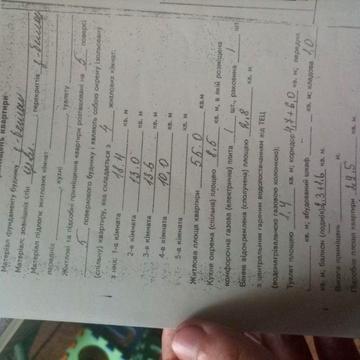 Матеріал фундаменту будинку з-бетон
Матеріал: зовнішніх стін цегла перекриттів з-бетон
Матеріал підлоги: житлових кімнат
передніх кухні туалету
Житлові та підсобні приміщення квартири розташовані на 5 поверсі
5 поверхового будинку і являють собою окрему (ізольовану)
(спільну) квартиру, яка складається з 4 житлових кімнат:
з них: 1-а кімната 18.4 кв. м
2-а кімната 13.0 кв. м
3-я кімната 13.6 кв. м
4-а кімната 10.0 кв. м
5-а кімната кв. м
Житлова площа квартири 55.0 кв.м
Кухня окрема (спільна) площею 8.6 кв. м, в якій розміщена
комфорочна газова (електрична) плита 1 шт., раковина 1 шт.
Ванна відокремлена (сполучена) площею кв. м
з центральним гарячим водопостачанням від ТЕЦ
(водонагрівальною газовою колонкою).
Туалет площею 1.4 кв. м; коридор кв. м; передня
кв. м, вбудований шаф кв. м; кладова 1,0
кв. м, балкон (лоджія) кв. м
Висота приміщень м.